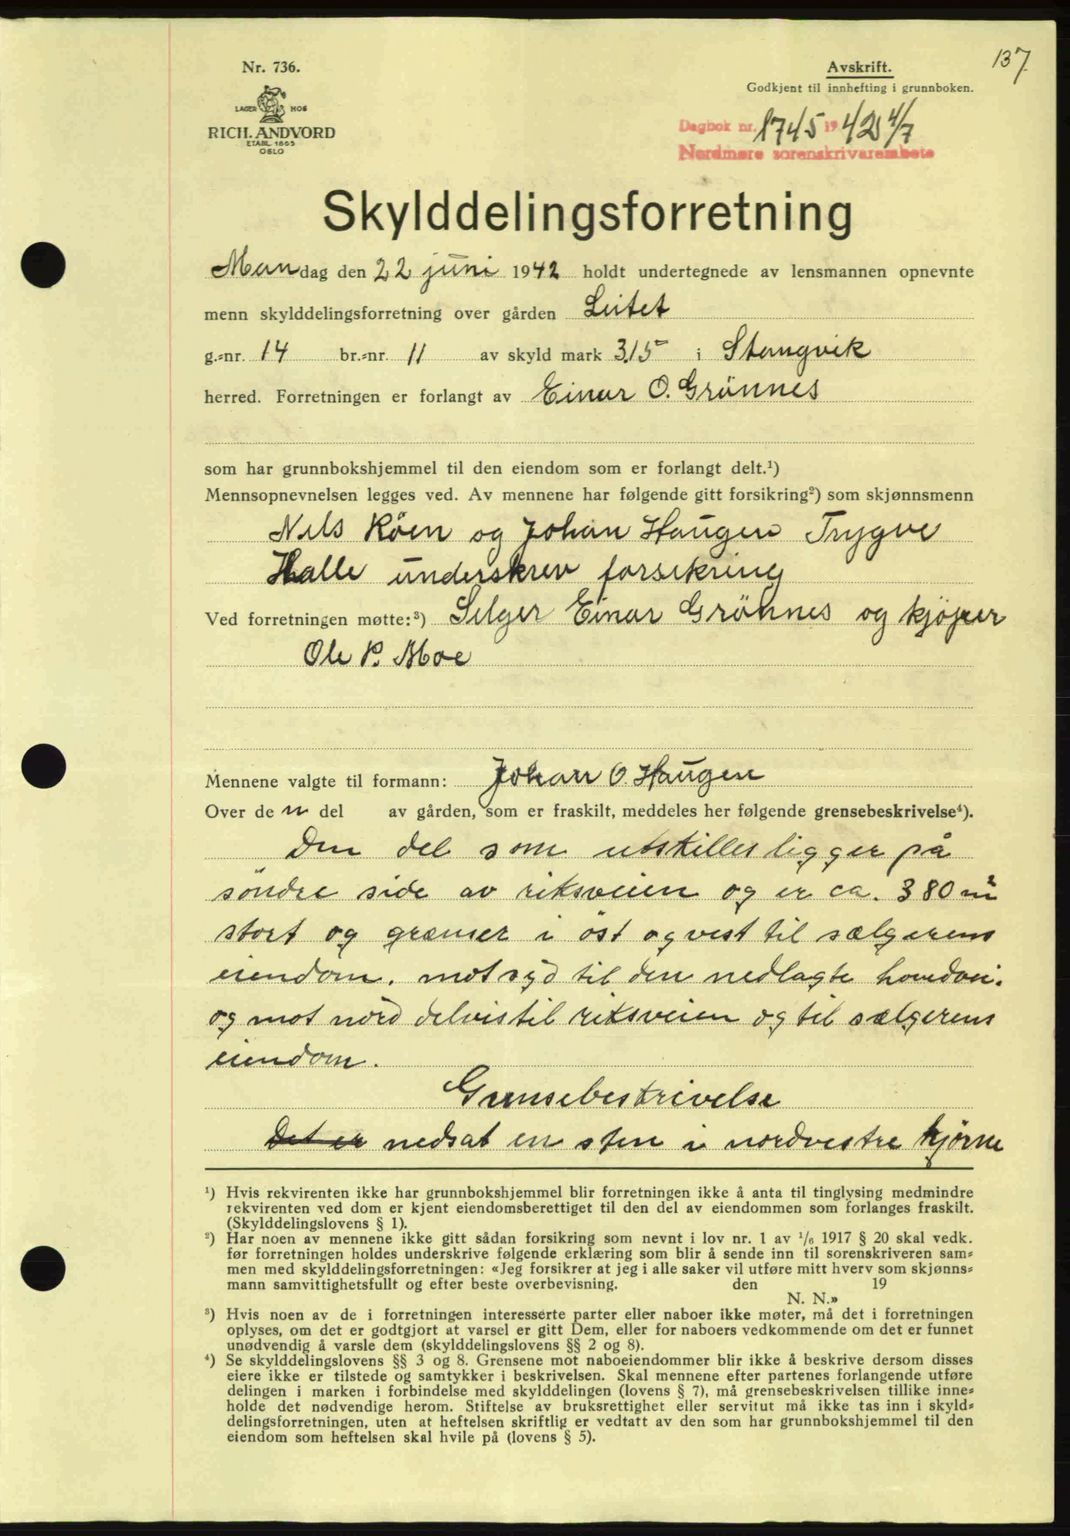 137.
Nr. 736.
LAGER HOS
RICH. ANDVORD
ETABL. 1865
OSLO
Avskrift.
Godkjent til innhefting i grunnboken.
Dagbok nr. 1745 1942 4/7
Nordmøre sorenskriverembete
Skylddelingsforretning
Mandag den 22 juni 1942 holdt undertegnede av lensmannen opnevnte
menn skylddelingsforretning over gården Leitet
g.=nr. 14 br.=nr. 11 av skyld mark 3.15 i Stangvik
herred. Forretningen er forlangt av Einar O. Grönnes
som har grunnbokshjemmel til den eiendom som er forlangt delt.¹)
Mennsopnevnelsen legges ved. Av mennene har følgende gitt forsikring²) som skjønnsmenn
Nils Röen og Johan Haugen Trygve
Halle underskrev forsikring
Ved forretningen møtte:³) Selger Einar Grönnes og kjöper
Ole P. Moe
Mennene valgte til formann: Johan O. Haugen
Over de n del av gården, som er fraskilt, meddeles her følgende grensebeskrivelse⁴).
Den del som utskilles ligger på
söndre side av riksveien og er ca. 380 m²
stort og grænser i öst og vest til sælgerens
eiendom. mot syd til den nedlagte hovedvei.
og mot nord delvis til riksveien og til sælgerens
eiendom.
Grensebeskrivelse
Det er nedsat en sten i nordvestre hjörne
¹) Hvis rekvirenten ikke har grunnbokshjemmel blir forretningen ikke å anta til tinglysing medmindre
rekvirenten ved dom er kjent eiendomsberettiget til den del av eiendommen som forlanges fraskilt.
(Skylddelingslovens § 1).
²) Har noen av mennene ikke gitt sådan forsikring som nevnt i lov nr. 1 av ¹/₆ 1917 § 20 skal vedk.
før forretningen holdes underskrive følgende erklæring som blir å sende inn til sorenskriveren sam=
men med skylddelingsforretningen: «Jeg forsikrer at jeg i alle saker vil utføre mitt hverv som skjønns=
mann samvittighetsfullt og efter beste overbevisning. den 19
N. N.»
³) Hvis noen av de i forretningen interesserte parter eller naboer ikke møter, må det i forretningen
oplyses, om det er godtgjort at varsel er gitt Dem, eller for naboers vedkommende om det er funnet
unødvendig å varsle dem (skylddelingslovens §§ 2 og 8).
⁴) Se skylddelingslovens §§ 3 og 8. Grensene mot naboeiendommer blir ikke å beskrive dersom disses
eiere ikke er tilstede og samtykker i beskrivelsen. Skal mennene efter partenes forlangende utføre
delingen i marken i forbindelse med skylddelingen (lovens § 7), må grensebeskrivelsen tillike inne=
holde det nødvendige herom. Stiftelse av bruksrettighet eller servitut må ikke tas inn i skyld=
delingsforretningen, uten at heftelsen skriftlig er vedtatt av den som har grunnbokshjemmel til den
eiendom som heftelsen skal hvile på (lovens § 5).